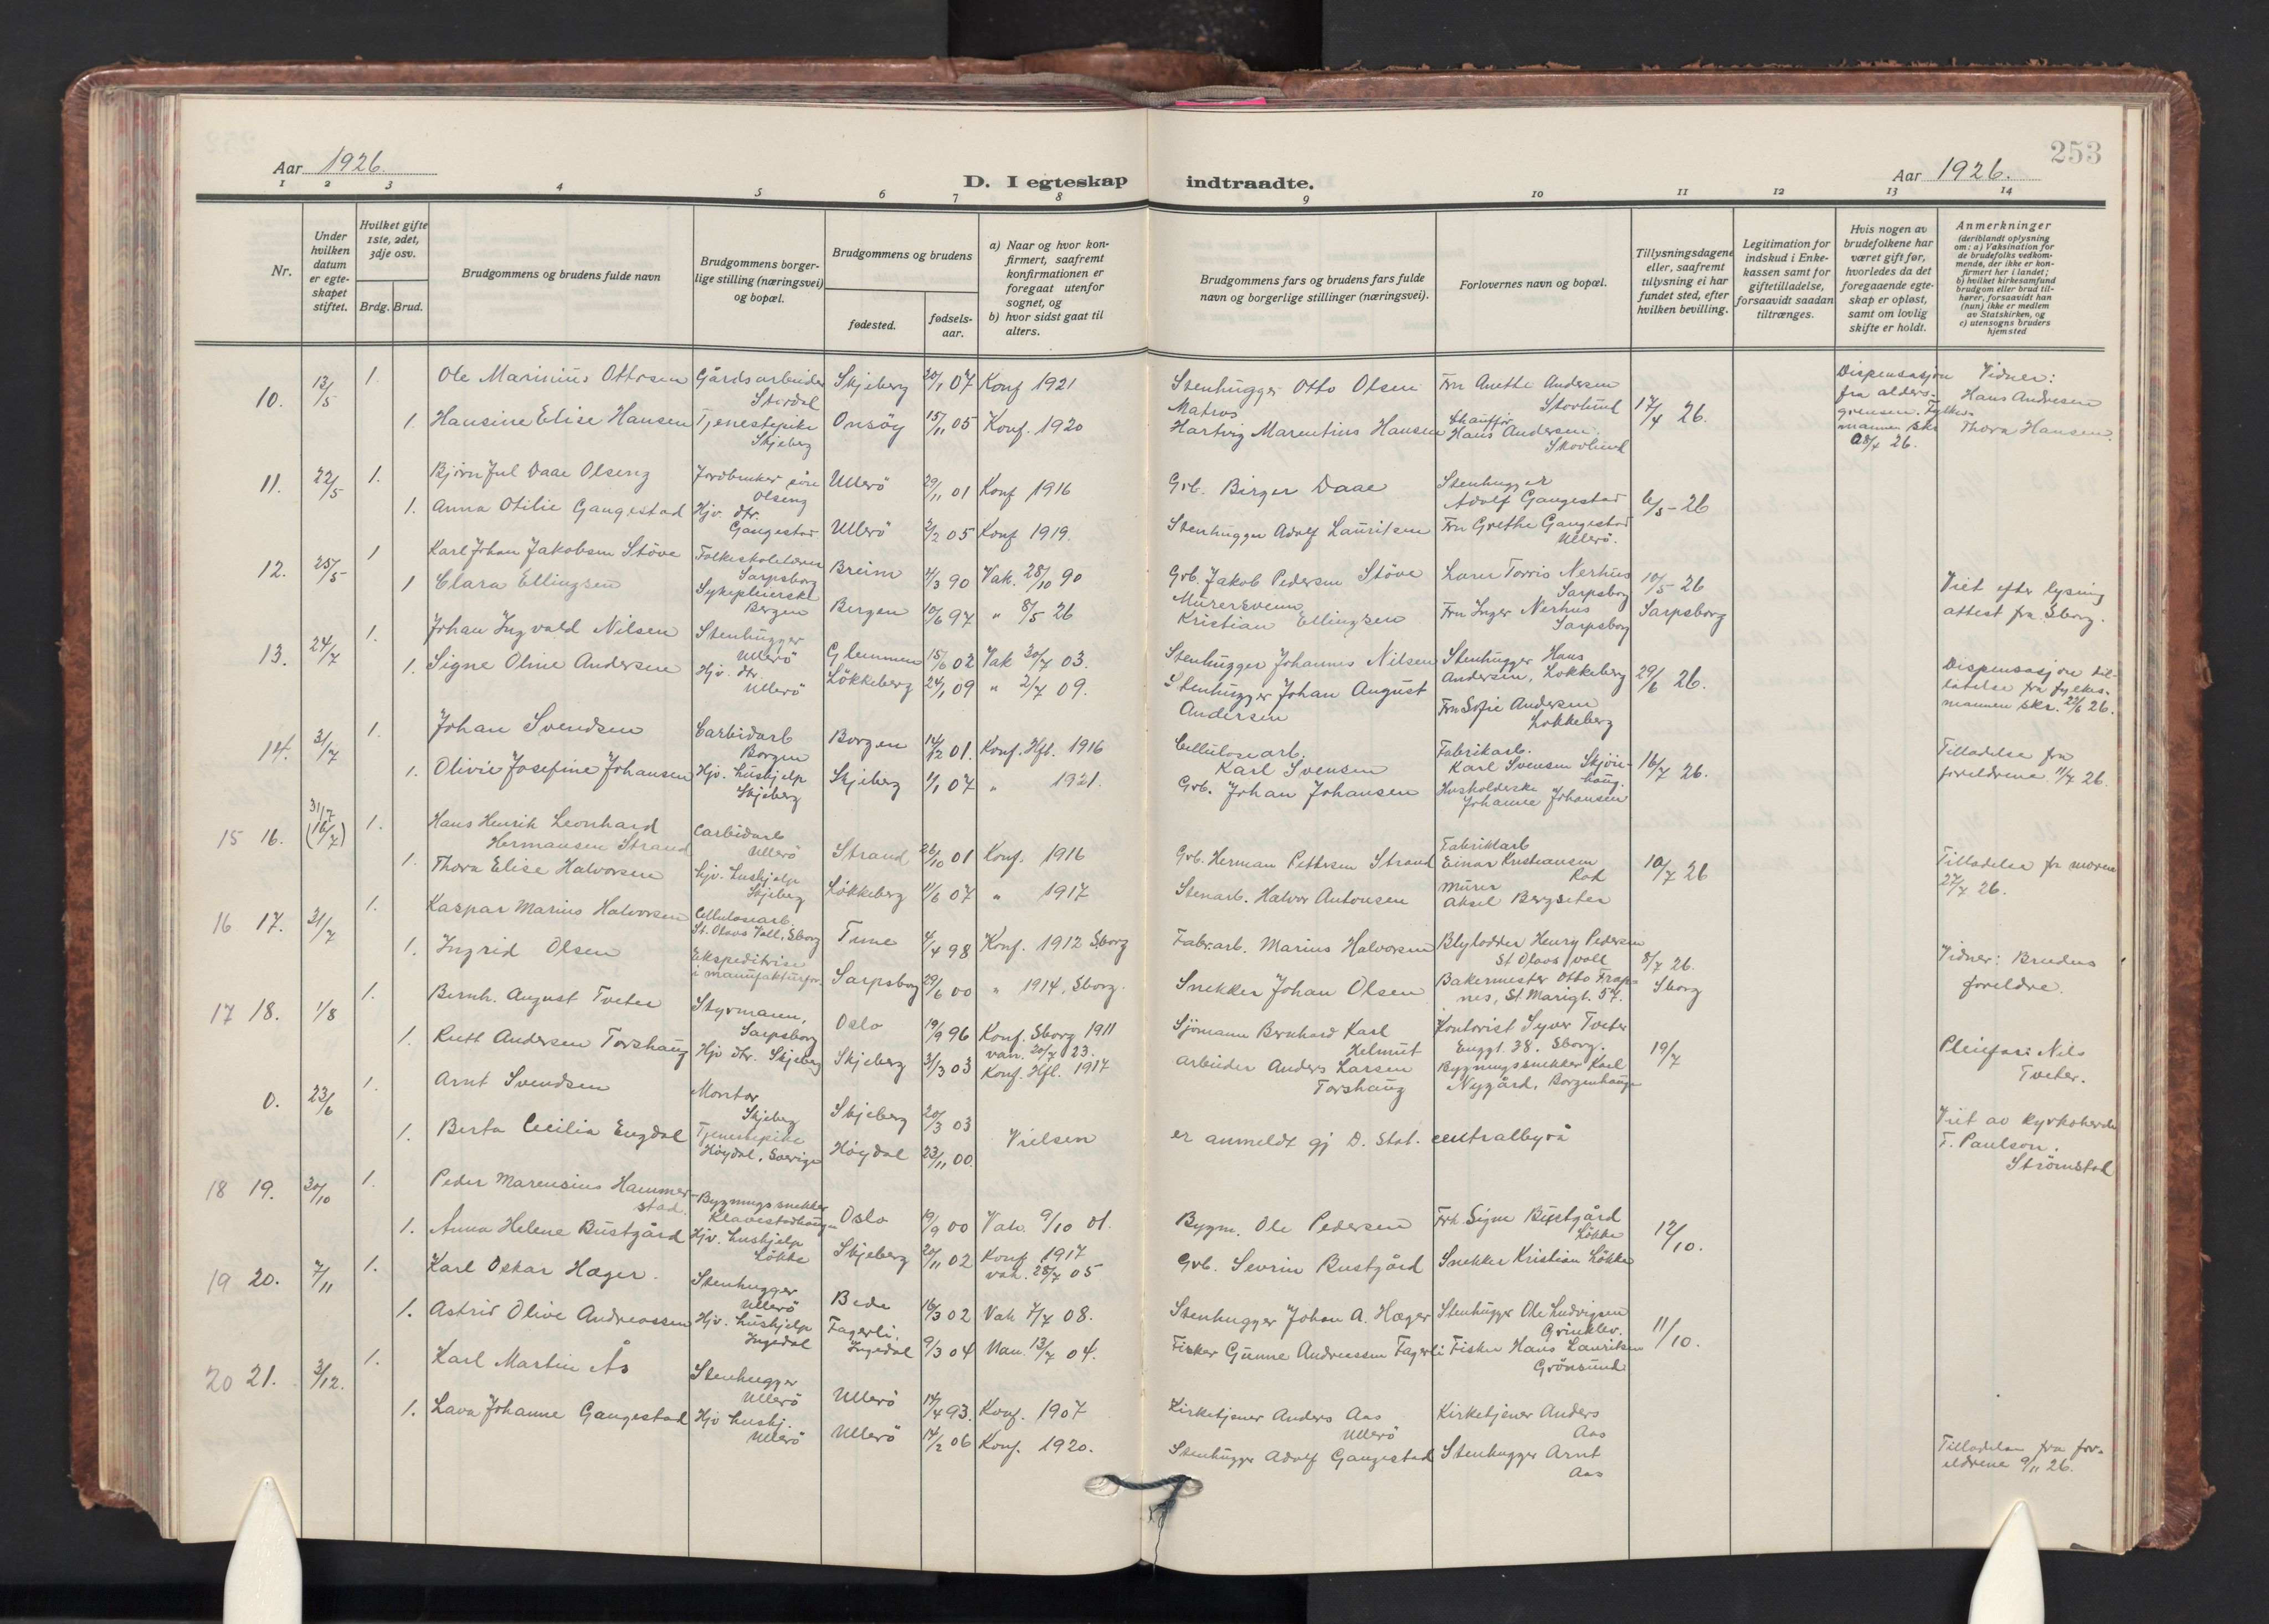 253
Aar 1926.
Aar 1926.
D. I egteskap indtraadte.
1 2 3 4 5 6 7 8 9 10 11 12 13 14
Nr.
Under hvilken datum er egteskapet stiftet.
Hvilket gifte 1ste, 2det, 3dje osv.
Brdg. Brud.
Brudgommens og brudens fulde navn
Brudgommens borgerlige stilling (næringsvei) og bopæl.
Brudgommens og brudens
fødested.
fødselsaar.
a) Naar og hvor konfirmert, saafremt konfirmationen er foregaat utenfor sognet, og
b) hvor sidst gaat til alters.
Brudgommens fars og brudens fars fulde navn og borgerlige stillinger (næringsvei).
Forlovernes navn og bopæl.
Tillysningsdagene eller, saafremt tillysning ei har fundet sted, efter hvilken bevilling.
Legitimation for indskud i Enkekassen samt for giftetilladelse, forsaavidt saadan tiltrænges.
Hvis nogen av brudefolkene har været gift før, hvorledes da det foregaaende egteskap er opløst, samt om lovlig skifte er holdt.
Anmerkninger
(deriblandt oplysning om: a) Vaksination for de brudefolks vedkommende, der ikke er konfirmert her i landet; b) hvilket kirkesamfund brudgom eller brud tilhører, forsaavidt han (hun) ikke er medlem av Statskirken, og c) utensogns bruders hjemsted
10. 13/5 1. Ole Marinius Ottosen Gårdsarbeider Skjeberg 20/1 07 Konf 1921 Stenhugger Otto Olsen Fru Anethe Andersen Skovlund 17/4 26. Dispensasjon fra aldersgrensen. Fylkesmannen skr 28/4 26. Vidner: Hans Andresen
1. Hansine Elise Hansen Tjenestepike Skjeberg Onsöy 15/11 05 Konf. 1920 Matros Hartvig Marentius Hansen Chauffør Hans Andersen. Skovlund Thora Hansen.
11. 22/5 1. Bjørn Jul Daae Olseng Jordbruker Olseng Ullerö 29/11 01 Konf 1916 Grb. Birger Daae Stenhugger Adolf Gangestad 6/5 - 26
1. Anna Otilie Gangestad Hjv. dtr. Gangestad Ullerö 3/2 05 Konf 1919. Stenhugger Adolf Lauritsen Fru Grethe Gangestad Ullerö.
12. 25/5 1 Karl Johan Jakobsen Stöve Folkeskolelærer Sarpsborg Breim 4/3 90 Vak. 28/10 90 Grb. Jakob Pedersen Stöve Lærer Torris Nerhus Sarpsborg 10/5 26 Viet efter lysing
1 Clara Ellingsen Sykepleierske Bergen Bergen 10/6 97 " 8/5 26 Murersvenn Kristian Ellingsen Fru Inger Nerhus Sarpsborg Sarpsborg attest fra Sborg.
13. 24/7 1. Johan Ingvald Nilsen Stenhugger Ullerö Glemmen 15/6 02 Vak 30/7 03. Stenhugger Johannes Nilsen Stenhugger Hans Andersen, Lökkeberg 29/6 26. Dispensasjon tillatelse fra fylkesmannen skr. 22/6 26.
1. Signe Oline Andersen Hjv. dtr. Ullerö Lökkeberg 24/1 09 " 2/7 09. Stenhugger Johan August Andersen Fru Sofie Andersen Lökkeberg
14. 31/7 1. Johan Svendsen Carbidarb Borgen Borgen 14/2 01. Konf. Hfl. 1916 Cellulosearb. Karl Svensen Fabrikarb. Karl Svensen Skjönhaug. 16/7 26. Tilladelse fra
1. Olivie Josefine Johansen Hjv. Lushjelp Skjeberg Skjeberg 1/1 07 " 1921. Grb. Johan Johansen Husholderske Johanne Johansen foreldrene 11/7 26.
15 16. 31/7 (16/7) 1. Hans Henrik Leonhard Hermansen Strand Carbidarb Ullerö Strand 26/10 01 Konf. 1916 Grb. Herman Pettersen Strand Fabrikkarb Einar Kristiansen Rød 10/7 26 Tilladelse fr moren 27/7 26.
1. Thora Elise Halvorsen Hjv. hushjelp Skjeberg Lökkeberg 11/6 07 " 1917 Stenarb. Halvor Antonsen Murer Aksel Bergseter
16 17. 31/7 1. Kaspar Marius Halvorsen Cellulosearb. St. Olavs Voll, Sborg Tune 4/4 98 Konf. 1912 Sborg Fabr.arb. Marius Halvorsen Blylodder Henry Pedersen St Olavs voll 8/7 26. Vidner: Brudens
1. Ingrid Olsen Ekspeditrise i manufakturfor. Sarpsborg 29/6 00 " 1914, Sborg. Snekker Johan Olsen Bakermester Otto Frapnes, St. Marigt. 57. Sborg foreldre.
17 18. 1/8 1. Bernh. August Tveter Styrmann, Sarpsborg Oslo 19/9 96 Konf. Sborg 1911 Sjömann Bernhard Karl Helmut Kontorist Syver Tveter Enggt. 38. Sborg. 19/7 Pleiefar: Nils Tveter.
1. Rutt Andersen Torshaug Hjv dtr. Skjeberg Skjeberg 3/3 03 van. 20/7 23. Konf. Hfl. 1917 Arbeider Anders Larsen Torshaug Bygningssnekker Karl Nygård, Borgenhaugen
0. 23/6 1. Arnt Svendsen Montør Skjeberg Skjeberg 20/3 03
1. Berta Cecilia Engdal Tjenestepike Höydal, Sverige Höydal 23/11 00. Vielsen er anmeldt gj D. Stat. centralbyrå Viet av Kyrkoherde T. Paulson. Strömstad
18 19. 30/10 1. Peder Marensius Hammerstad. Bygningssnekker Klavestadhaugen Oslo 19/9 00 Vak. 9/10 01. Bygm. Ole Pedersen Frk Signe Bustgård Løkke 12/10.
1. Anna Helene Bustgård Hjv. hushjelp Lökke Skjeberg 20/11 02 Konf 1917 vak. 28/7 05 Grb. Sevrin Bustgård Snekker Kristian Lökke
19 20. 7/11 1. Karl Oskar Hæger. Stenhugger Ullerö Bede 16/3 02 Vak 7/7 08. Stenhugger Johan A. Hæger Stenhugger Ole Ludvigsen Grinklev. 11/10.
1. Astrid Olive Andreassen Hjv. hushjelp Ingedal Fagerli, Ingedal 9/3 04 Van. 13/7 04. Fisker Gunne Andreassen Fagerli Fisker Hans Lauritsen Grönsund
20 21. 3/12. 1. Karl Martin Ås Stenhugger Ullerö Ullerö 17/4 93. Konf. 1907 Kirketjener Anders Aas Ullerö Kirketjener Anders Aas
1. Lava Johanne Gangestad Hjv hushj. Ullerö Ullerö 14/2 06 Konf. 1920. Stenhugger Adolf Gangestad Stenhugger Arnt Aas Tilladelse fra foreldrene 9/11 26.